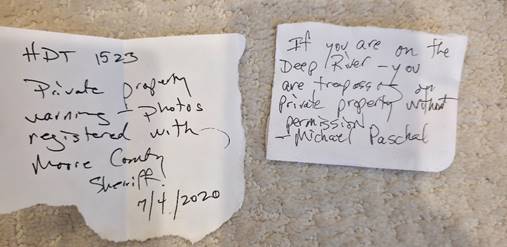 HDT 1523
Private property
warning - Photos
registered with
Moore County
Sherriff.
7/4/2020
If you are on the
Deep River - you
are trespassing on
private property without
permission
- Michael Paschal